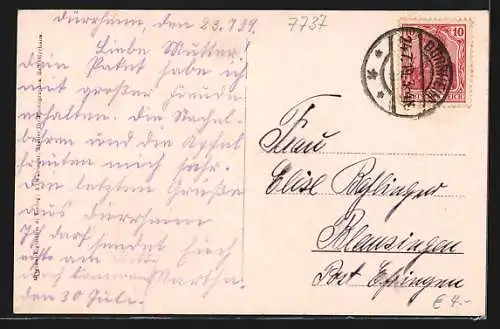 Dürrheim, den 23.7.19.
Liebe Mutter!
Dein Paket habe ich
mit großer Freude
erhalten. Die Stachel-
beeren und die Äpfel
freuten mich sehr.
Die letzten Grüße
aus Dürrheim
sendet Euch
Martha.
den 30 Juli.
7737
10
DÜRRHEIM
Frau
Elise
Blansingen
Post Efringen
€ 4.-